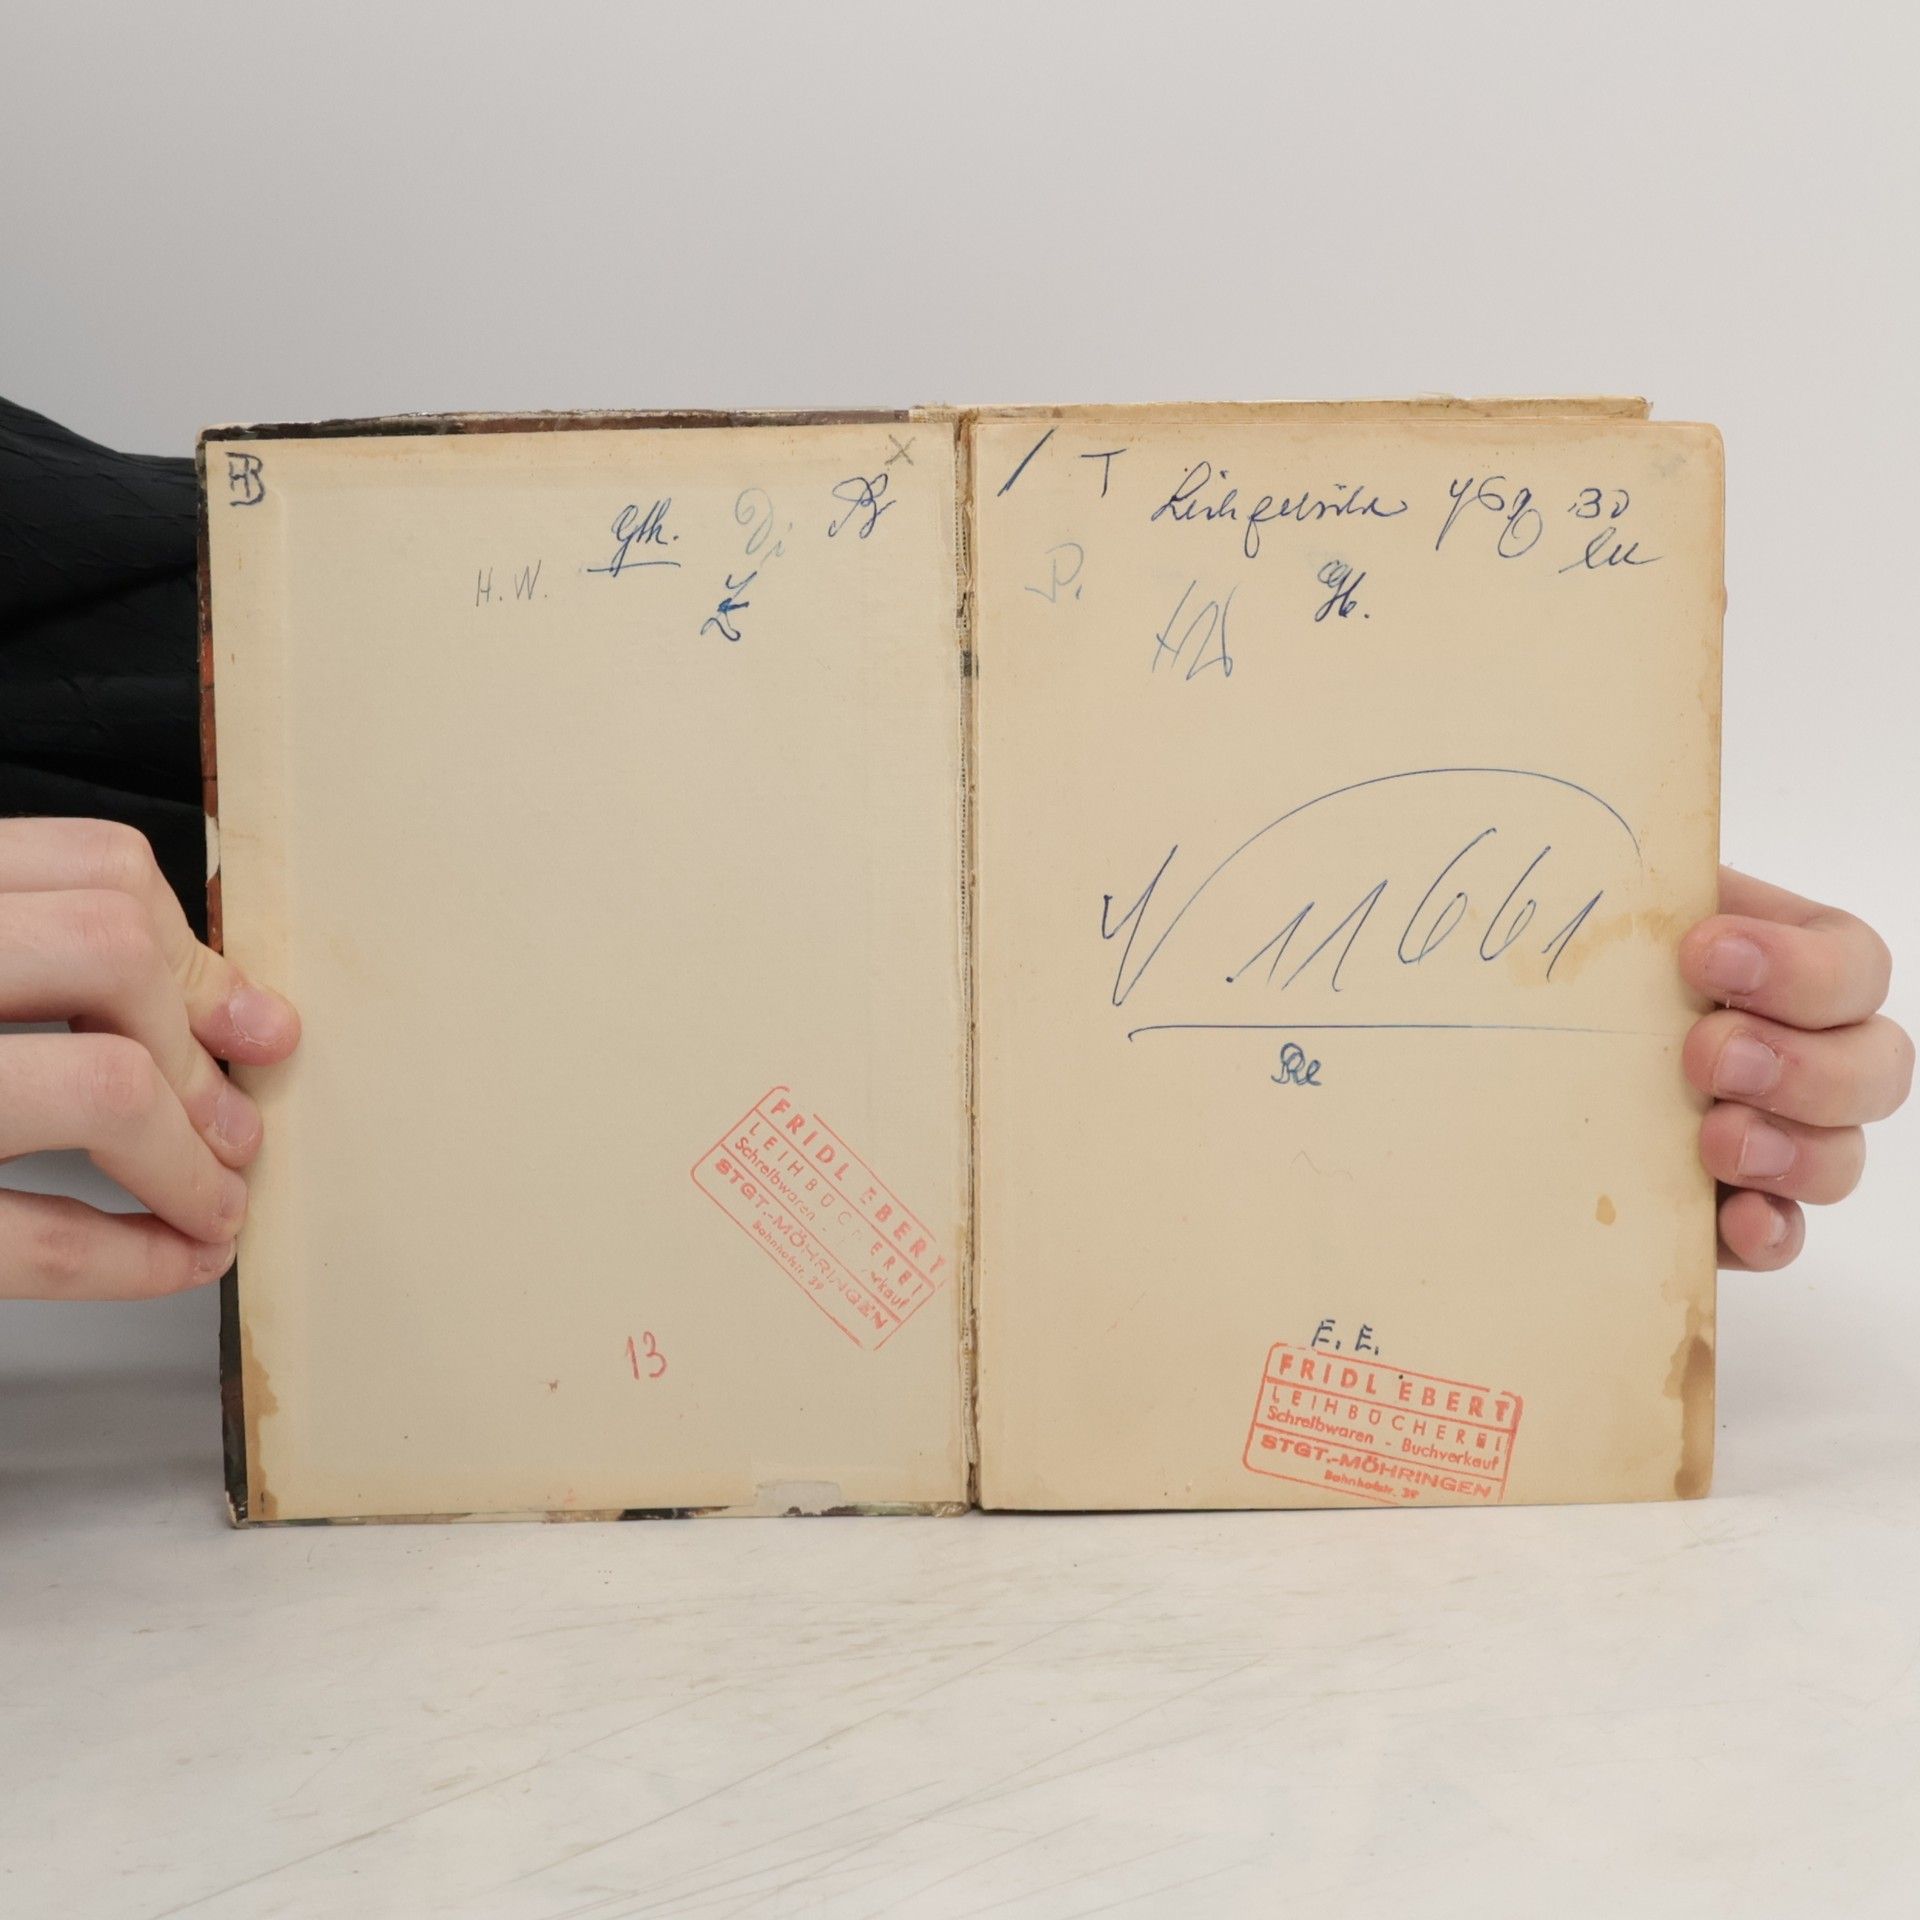 B
X
Gth.
Di
H. W.
FRIDL EBERT
LEIHBÜCHEREI
Schreibwaren - Buchverkauf
STGT.-MÖHRINGEN
Bahnhofstr. 39
13
/ T Leihgebühr -.30
P.
V 11661
Re
E. E.
FRIDL EBERT
LEIHBÜCHEREI
Schreibwaren - Buchverkauf
STGT.-MÖHRINGEN
Bahnhofstr. 39